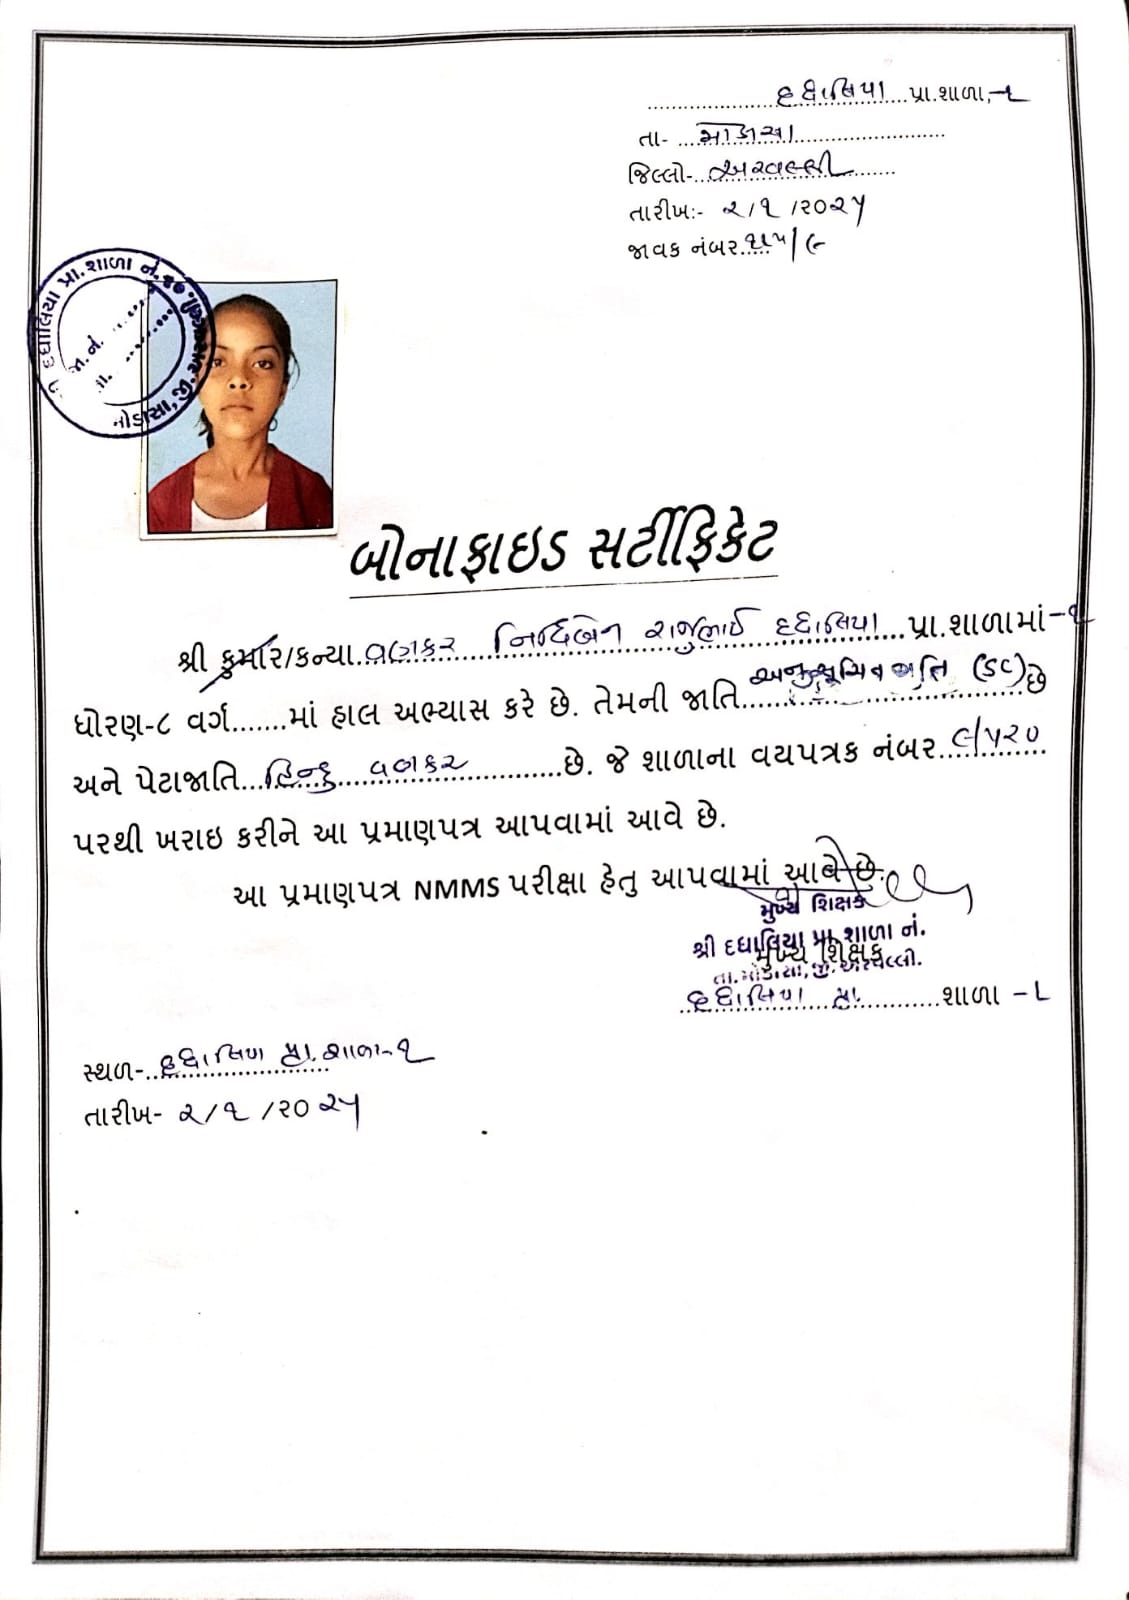 દધાલિયા પ્રા.શાળા,-૧
તા- મોડાસા
જિલ્લો- અરવલ્લી
તારીખ:- ૨/૧/૨૦૨૫
જાવક નંબર
દધાલિયા પ્રા.શાળા નં.
જા.નં.
તા.
મોડાસા,
બોનાફાઇડ સર્ટીફિકેટ
શ્રી કુમાર/કન્યા. વણકર નિધિબેન રાજુભાઈ દધાલિયા પ્રા.શાળામાં-૧
ધોરણ-૮ વર્ગ.......માં હાલ અભ્યાસ કરે છે. તેમની જાતિ અનુસૂચિત જાતિ (SC) છે
અને પેટાજાતિ હિન્દુ વણકર છે. જે શાળાના વયપત્રક નંબર ૯/૫૨૦
પરથી ખરાઇ કરીને આ પ્રમાણપત્ર આપવામાં આવે છે.
આ પ્રમાણપત્ર NMMS પરીક્ષા હેતુ આપવામાં આવે છે.
મુખ્ય શિક્ષક
શ્રી દધાલિયા પ્રા.શાળા નં.
મુખ્ય શિક્ષક
તા.મોડાસા,જી.અરવલ્લી.
દધાલિયા પ્રા. શાળા -૧
સ્થળ- દધાલિયા પ્રા.શાળા-૧
તારીખ- ૨/૧/૨૦૨૫